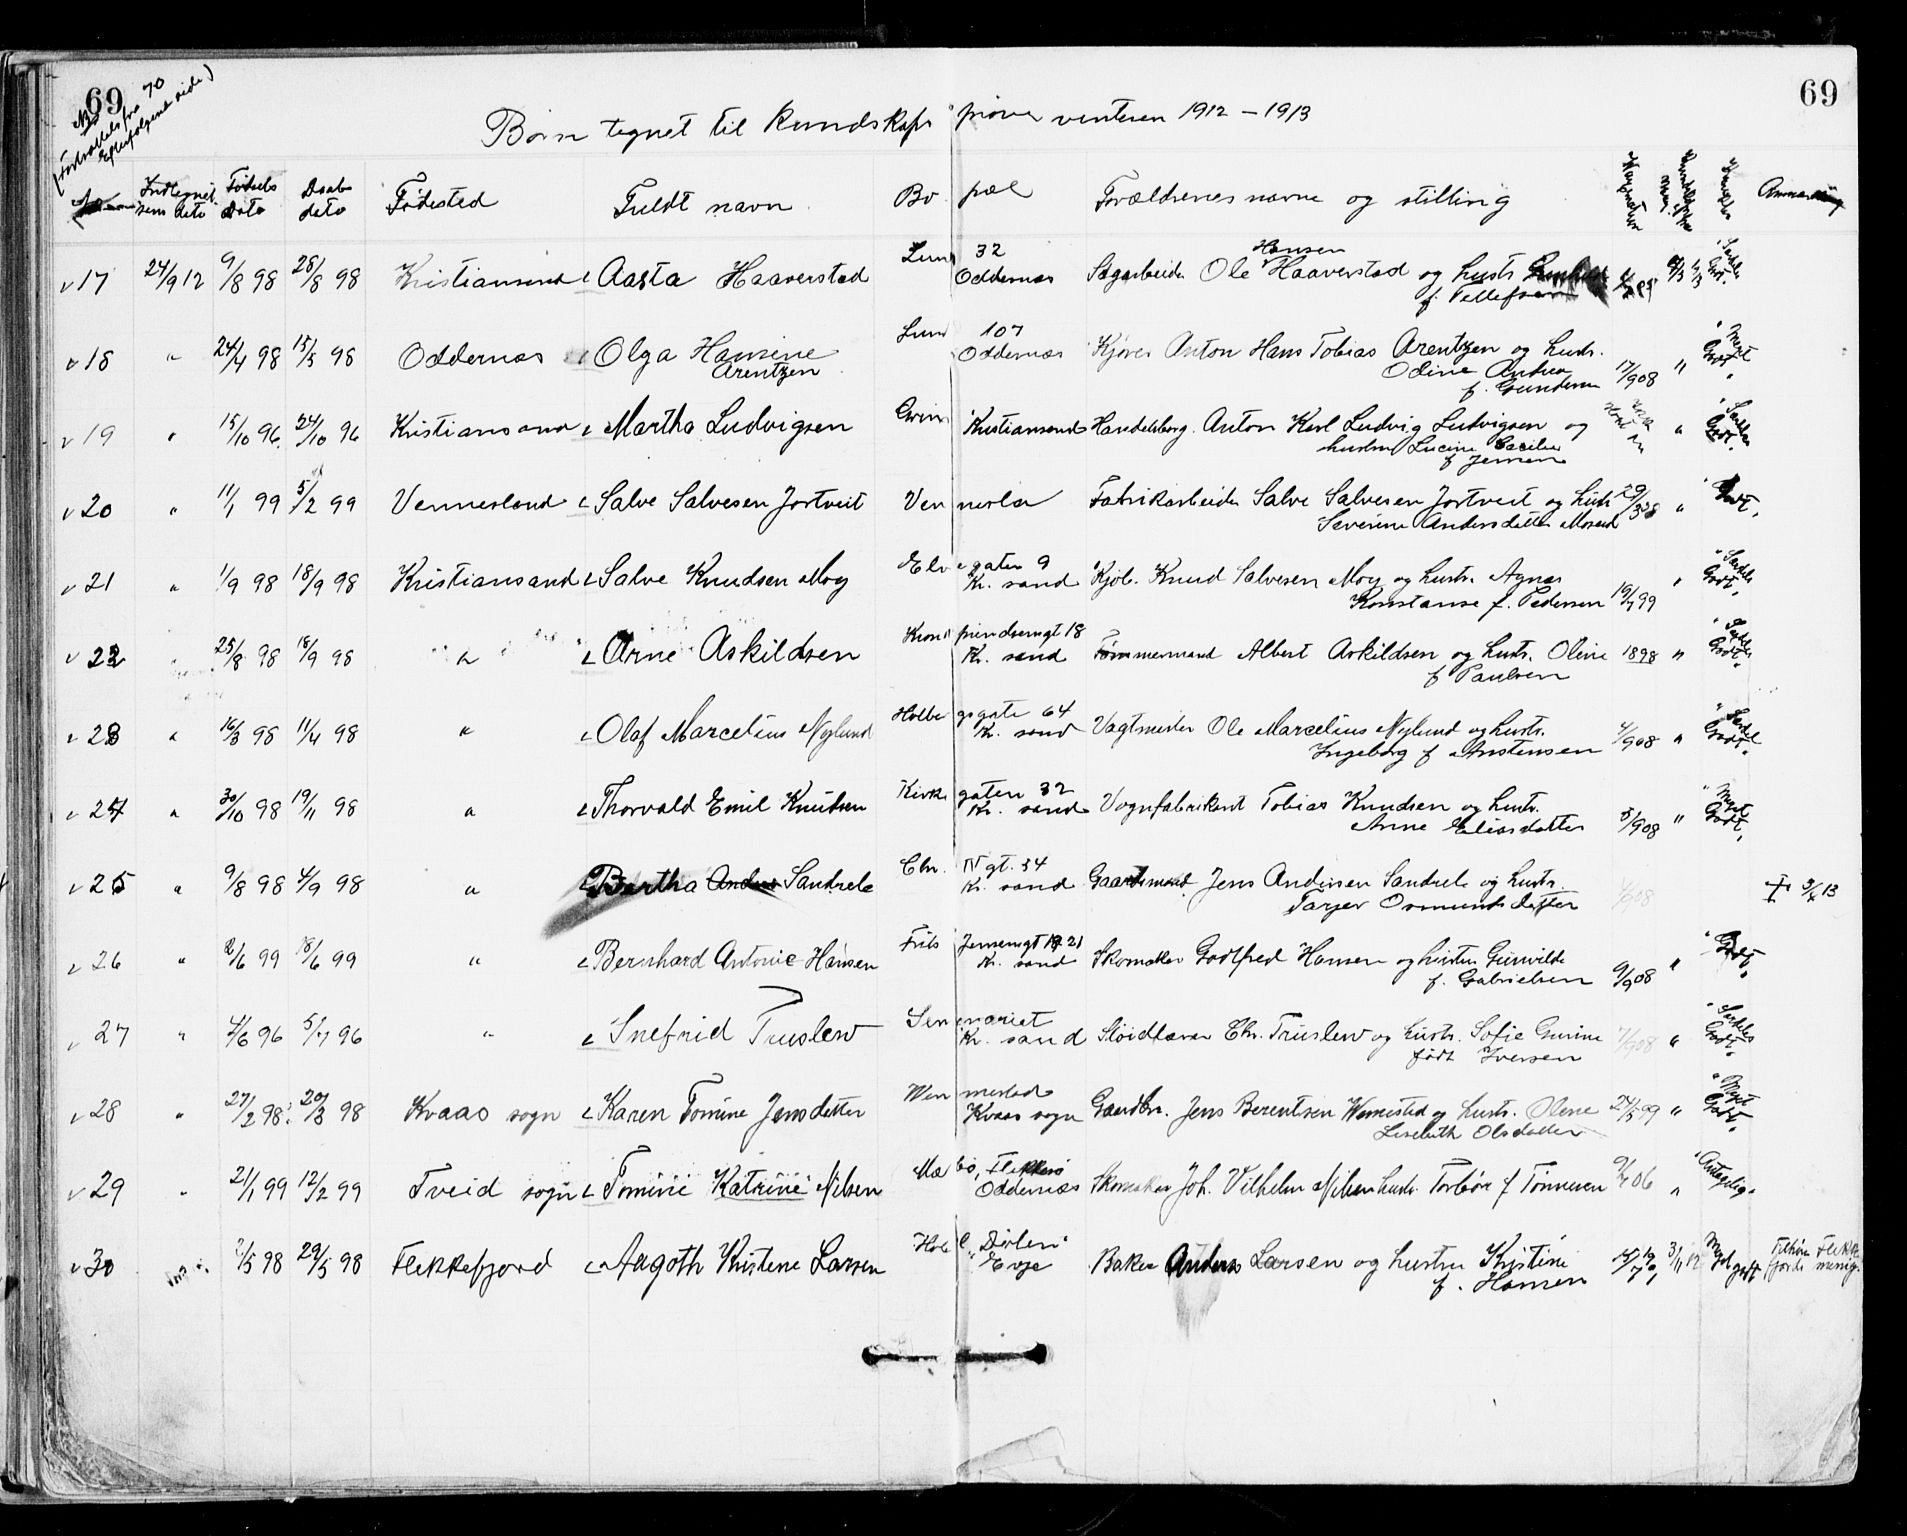 69
69
Nb
(fortsættels fra 70
Efterfølgene side)
Børn tegnet til kundskaps prøve vinteren 1912 – 1913
Indtegnelsens dato Fødsels Dato Daabs dato Fødested Fuldt navn Bopæl Forældrenes navne og stilling Anmærkning
Lund 32 Hansen "Særdeles
v 17 24/9 12 9/8 98 28/8 98 Kristiansand Aasta Haaverstad Oddernæs Sagarbeider Ole Haaverstad og hustr Godt.
f. Tellefsen
Lund 107 "Meget
v 18 " 24/4 98 15/5 98 Oddernæs Olga Hansine Oddernæs Kjører Anton Hans Tobias Arentzen og hustr. Godt
Arentzen Odine Andrea 17/908 "
f. Gundersen
v 19 " 15/10 96 24/10 96 Kristiansand Martha Ludvigsen Grim Kristiansand Handelsborg. Anton Karl Ludvig Ludvigsen og " "Særdeles Godt.
hustru Lucine Cecilie
f Jensen
v 20 " 11/1 99 5/2 99 Vennesland Salve Salvesen Jortveit Vennesla Fabrikarbeider Salve Salvesen Jortveit og hustr " "Godt.
Severine Andersdatter Moseid
Elvegaten 9 "Særdeles
v 21 " 1/9 98 18/9 98 Kristiansand Salve Knudsen Moy Kr. sand Kjøb. Knud Salvesen Moy og hustr. Agnes " Godt.
Konstanse f. Pedersen 19/7 99
Kronprindsensgt 18 "Særdeles
v 22 25/8 98 18/9 98 " Arne Askildsen Kr. sand Tømmermand Albert Askildsen og hustr. Oline 1898 " Godt
f Paulsen
Holbergsgate 64 "Særdel
v 23 " 16/3 98 11/4 98 " Olaf Marcelius Nylund Kr. sand Vagtmester Ole Marcelius Nylund og hustr. Godt.
Ingeborg f Anstensen 4/908 "
Kirkegaten 32 "Meget
v 24 " 30/10 98 19/11 98 " Thorvald Emil Knudsen Kr. sand Vognfabrikant Tobias Knudsen og hustr. Godt.
Anne Eliasdatter 5/908 "
Chr. IV gt. 34
v 25 " 9/8 98 4/9 98 " Bertha Sandrele Kr. sand Gaardsmand Jens Andersen Sandrele og hustr. + 3/4 13
Tarjer Osmundsdatter
Frits Jensensgt 21
v 26 " 2/6 99 18/6 99 " Bernhard Antonie Hansen Kr. sand Skomaker Godtfred Hansen og hustru Gunvilde " "Godt.
f. Gabrielsen 9/908
Semenariet "Særdeles
v 27 " 4/6 96 5/7 96 " Snefrid Truslew Kr. sand Sløidlærer Chr. Truslew og hustr. Sofie Gurine 7/908 " Godt.
født Iversen
Wenmestad "Meget
v 28 " 27/2 98 20/3 98 Kvaas sogn Karen Tomine Jensdatter Kvaas sogn Gaardbr. Jens Berentsen Wemestad og hustr. Olene 24/5 99 " Godt.
Lisebeth Olsdatter
Mæbø, Flekkerø
v 29 " 21/1 99 12/2 99 Tveid sogn Tomine Katrine Nilsen Oddernæs Skomaker Joh. Vilhelm Nilsen hustr. Torbør f Tønnesen 9/7 06 " "Antagelig"
Hotel "Dølen"
v 30 2/5 98 29/5 98 Flekkefjord Aagoth Kristene Larsen Evje Baker Anders Larsen og hustru Kristine 3/11 12 Meget godt Tilhører Flekkefjords menig.
f. Hansen